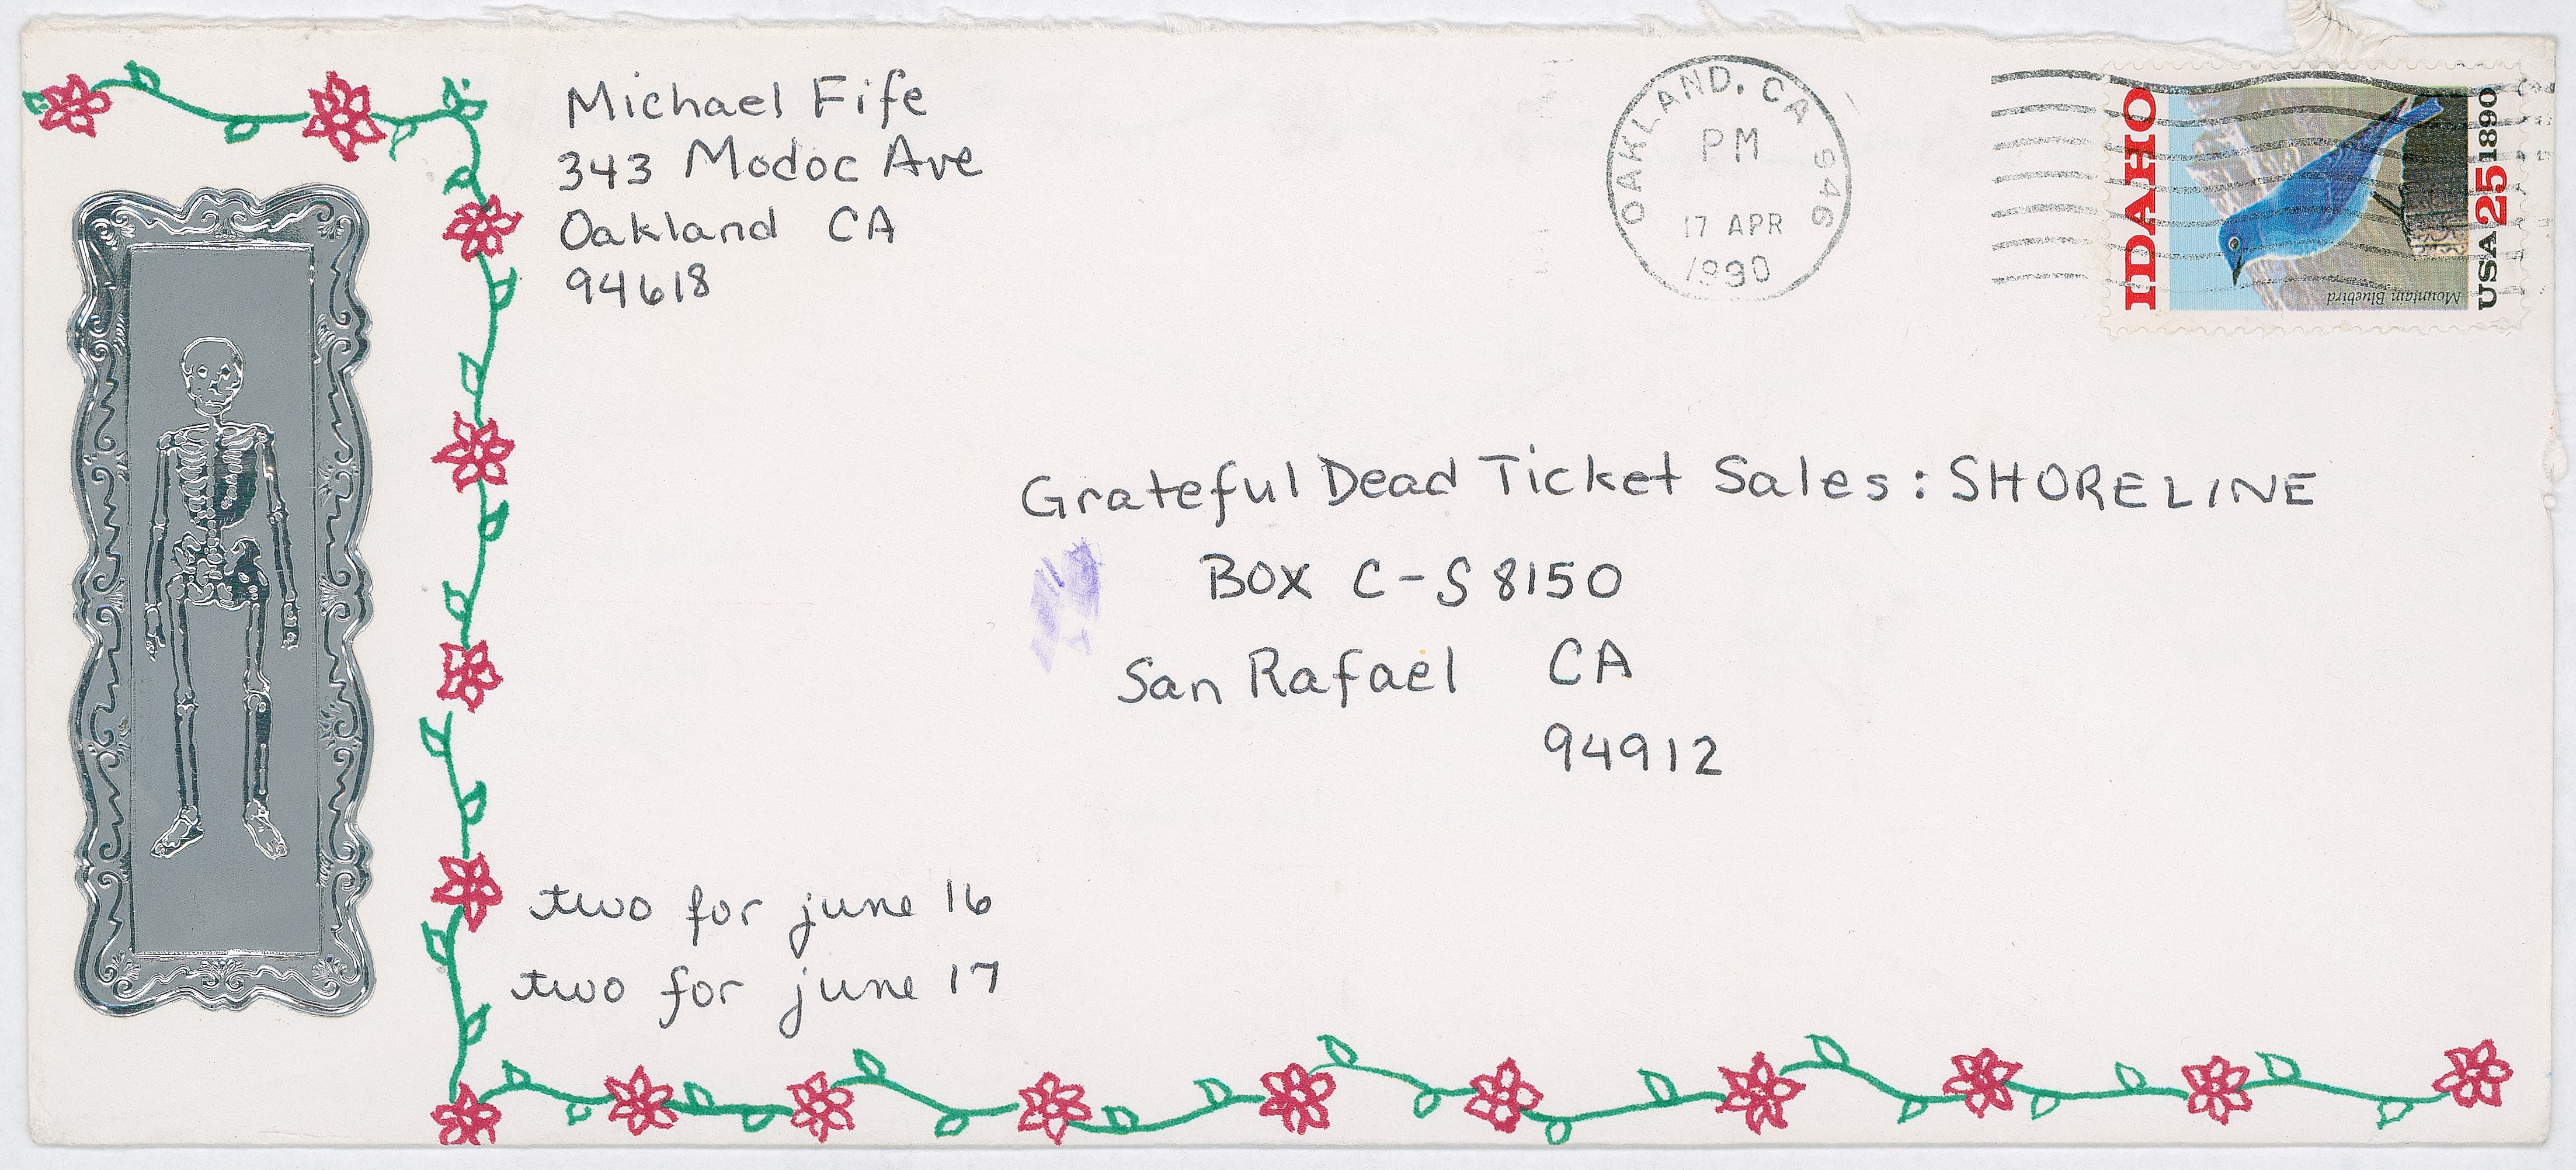 Michael Fife
343 Modoc Ave
Oakland CA
94618
OAKLAND, CA 946
PM
17 APR
1990
IDAHO
Mountain Bluebird
USA 25 1890
Grateful Dead Ticket Sales: SHORELINE
BOX C-S 8150
San Rafael CA
94912
two for june 16
two for june 17